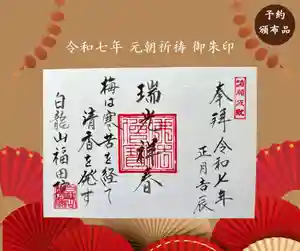 予約
頒布品
令和七年 元朝祈祷 御朱印
奉拝
令和七年
正月吉辰
瑞光祥春
梅は寒苦を経て
清香を発す
白龍山福田院